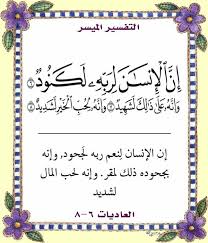 التفسير الميسر
إِنَّ الْإِنسَانَ لِرَبِّهِ لَكَنُودٌ ٦
وَإِنَّهُ عَلَىٰ ذَٰلِكَ لَشَهِيدٌ ٧ وَإِنَّهُ لِحُبِّ الْخَيْرِ لَشَدِيدٌ ٨
إن الإنسان لِنعم ربه لَجحود، وإنه
بجحوده ذلك لمقر. وإنه لحب المال
لشديد
العاديات ٦-٨